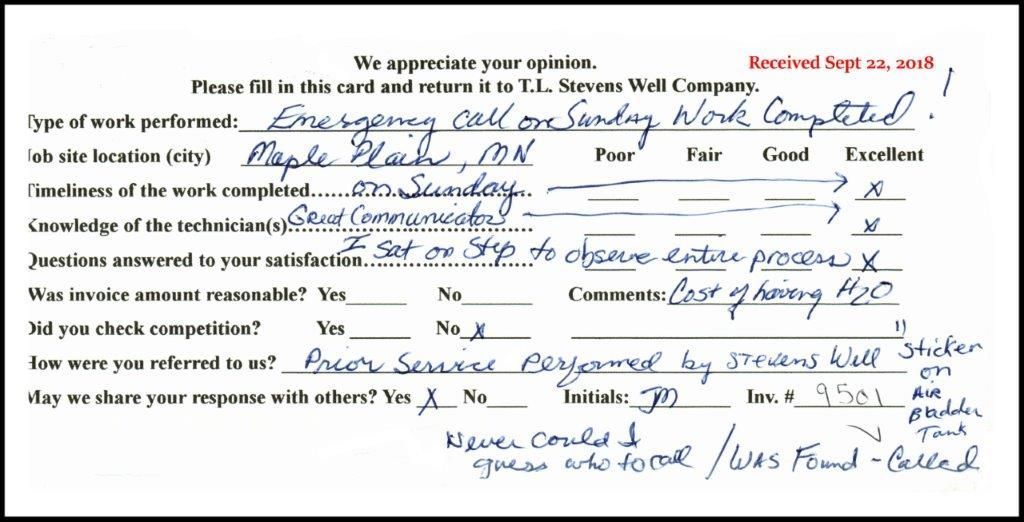 We appreciate your opinion. Received Sept 22, 2018
Please fill in this card and return it to T.L. Stevens Well Company.
Type of work performed: Emergency call on Sunday Work Completed!
Job site location (city) Maple Plain, MN Poor Fair Good Excellent
Timeliness of the work completed...... on Sunday X
Knowledge of the technician(s). Great Communicator X
Questions answered to your satisfaction. I sat on Step to observe entire process X
Was invoice amount reasonable? Yes No Comments: Cost of having H2O
Did you check competition? Yes No X 1)
How were you referred to us? Prior Service performed by Stevens Well Sticker on
May we share your response with others? Yes X No Initials: JM Inv. # 9501 AIR Bladder Tank
Never could I guess who to call / WAS Found - Called